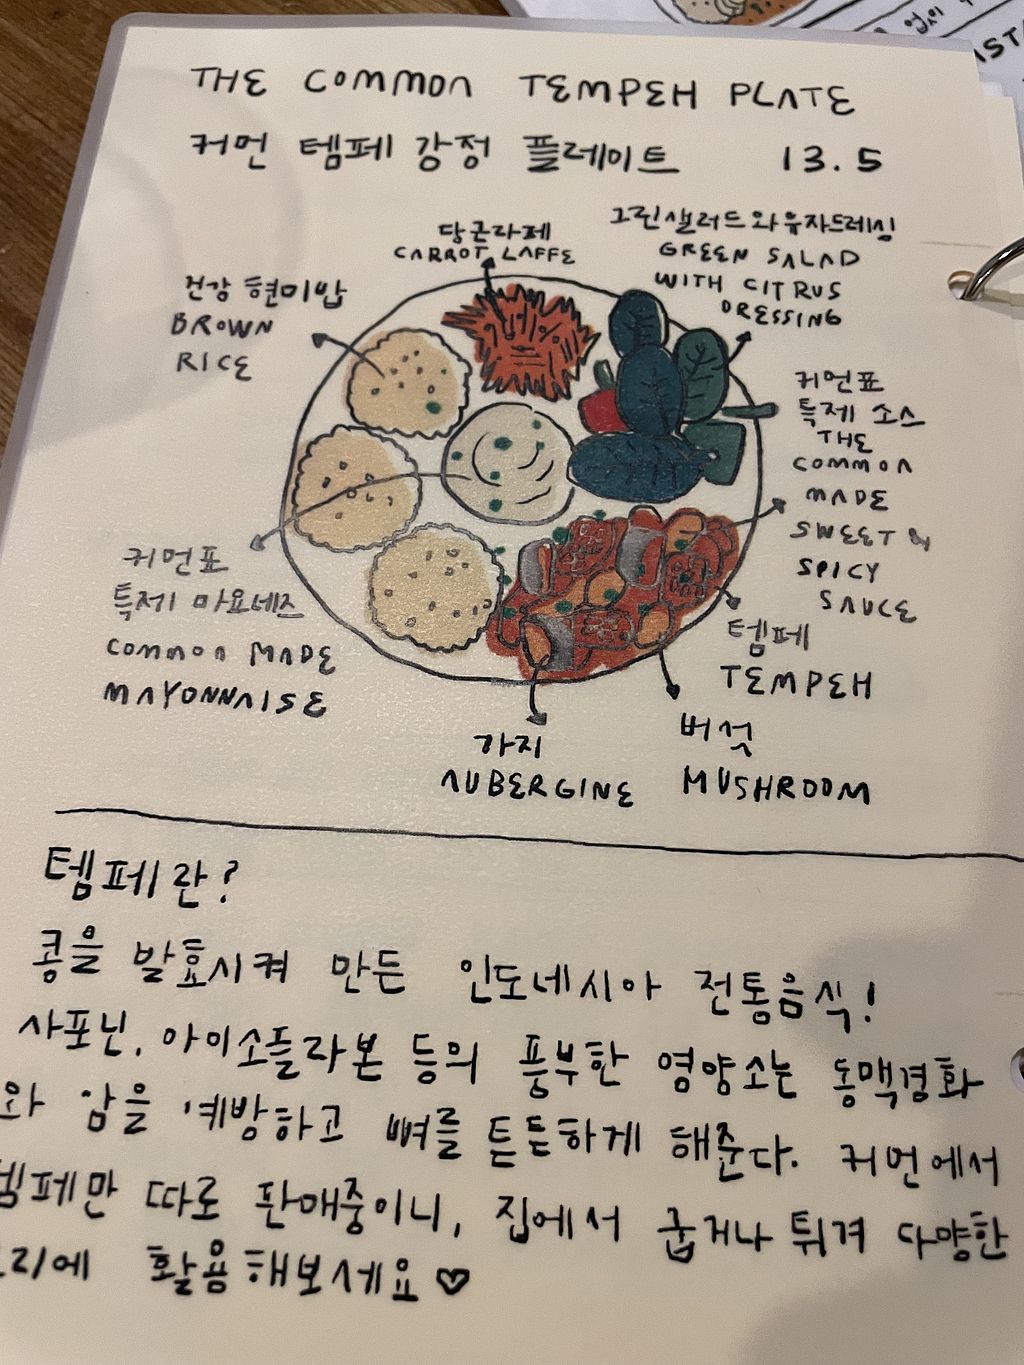 THE COMMON TEMPEH PLATE
커먼 템페 강정 플레이트 13.5
당근라페
CARROT LAFFE
그린샐러드와유자드레싱
GREEN SALAD
WITH CITRUS
DRESSING
건강 현미밥
BROWN
RICE
커먼표
특제 소스
THE
COMMON
MADE
SWEET &
SPICY
SAUCE
커먼표
특제 마요네즈
COMMON MADE
MAYONNAISE
템페
TEMPEH
가지
AUBERGINE
버섯
MUSHROOM
템페란?
콩을 발효시켜 만든 인도네시아 전통음식!
사포닌, 아이소플라본 등의 풍부한 영양소는 동맥경화
와 암을 예방하고 뼈를 튼튼하게 해준다. 커먼에서
템페만 따로 판매중이니, 집에서 굽거나 튀겨 다양한
활용해보세요♡
없이